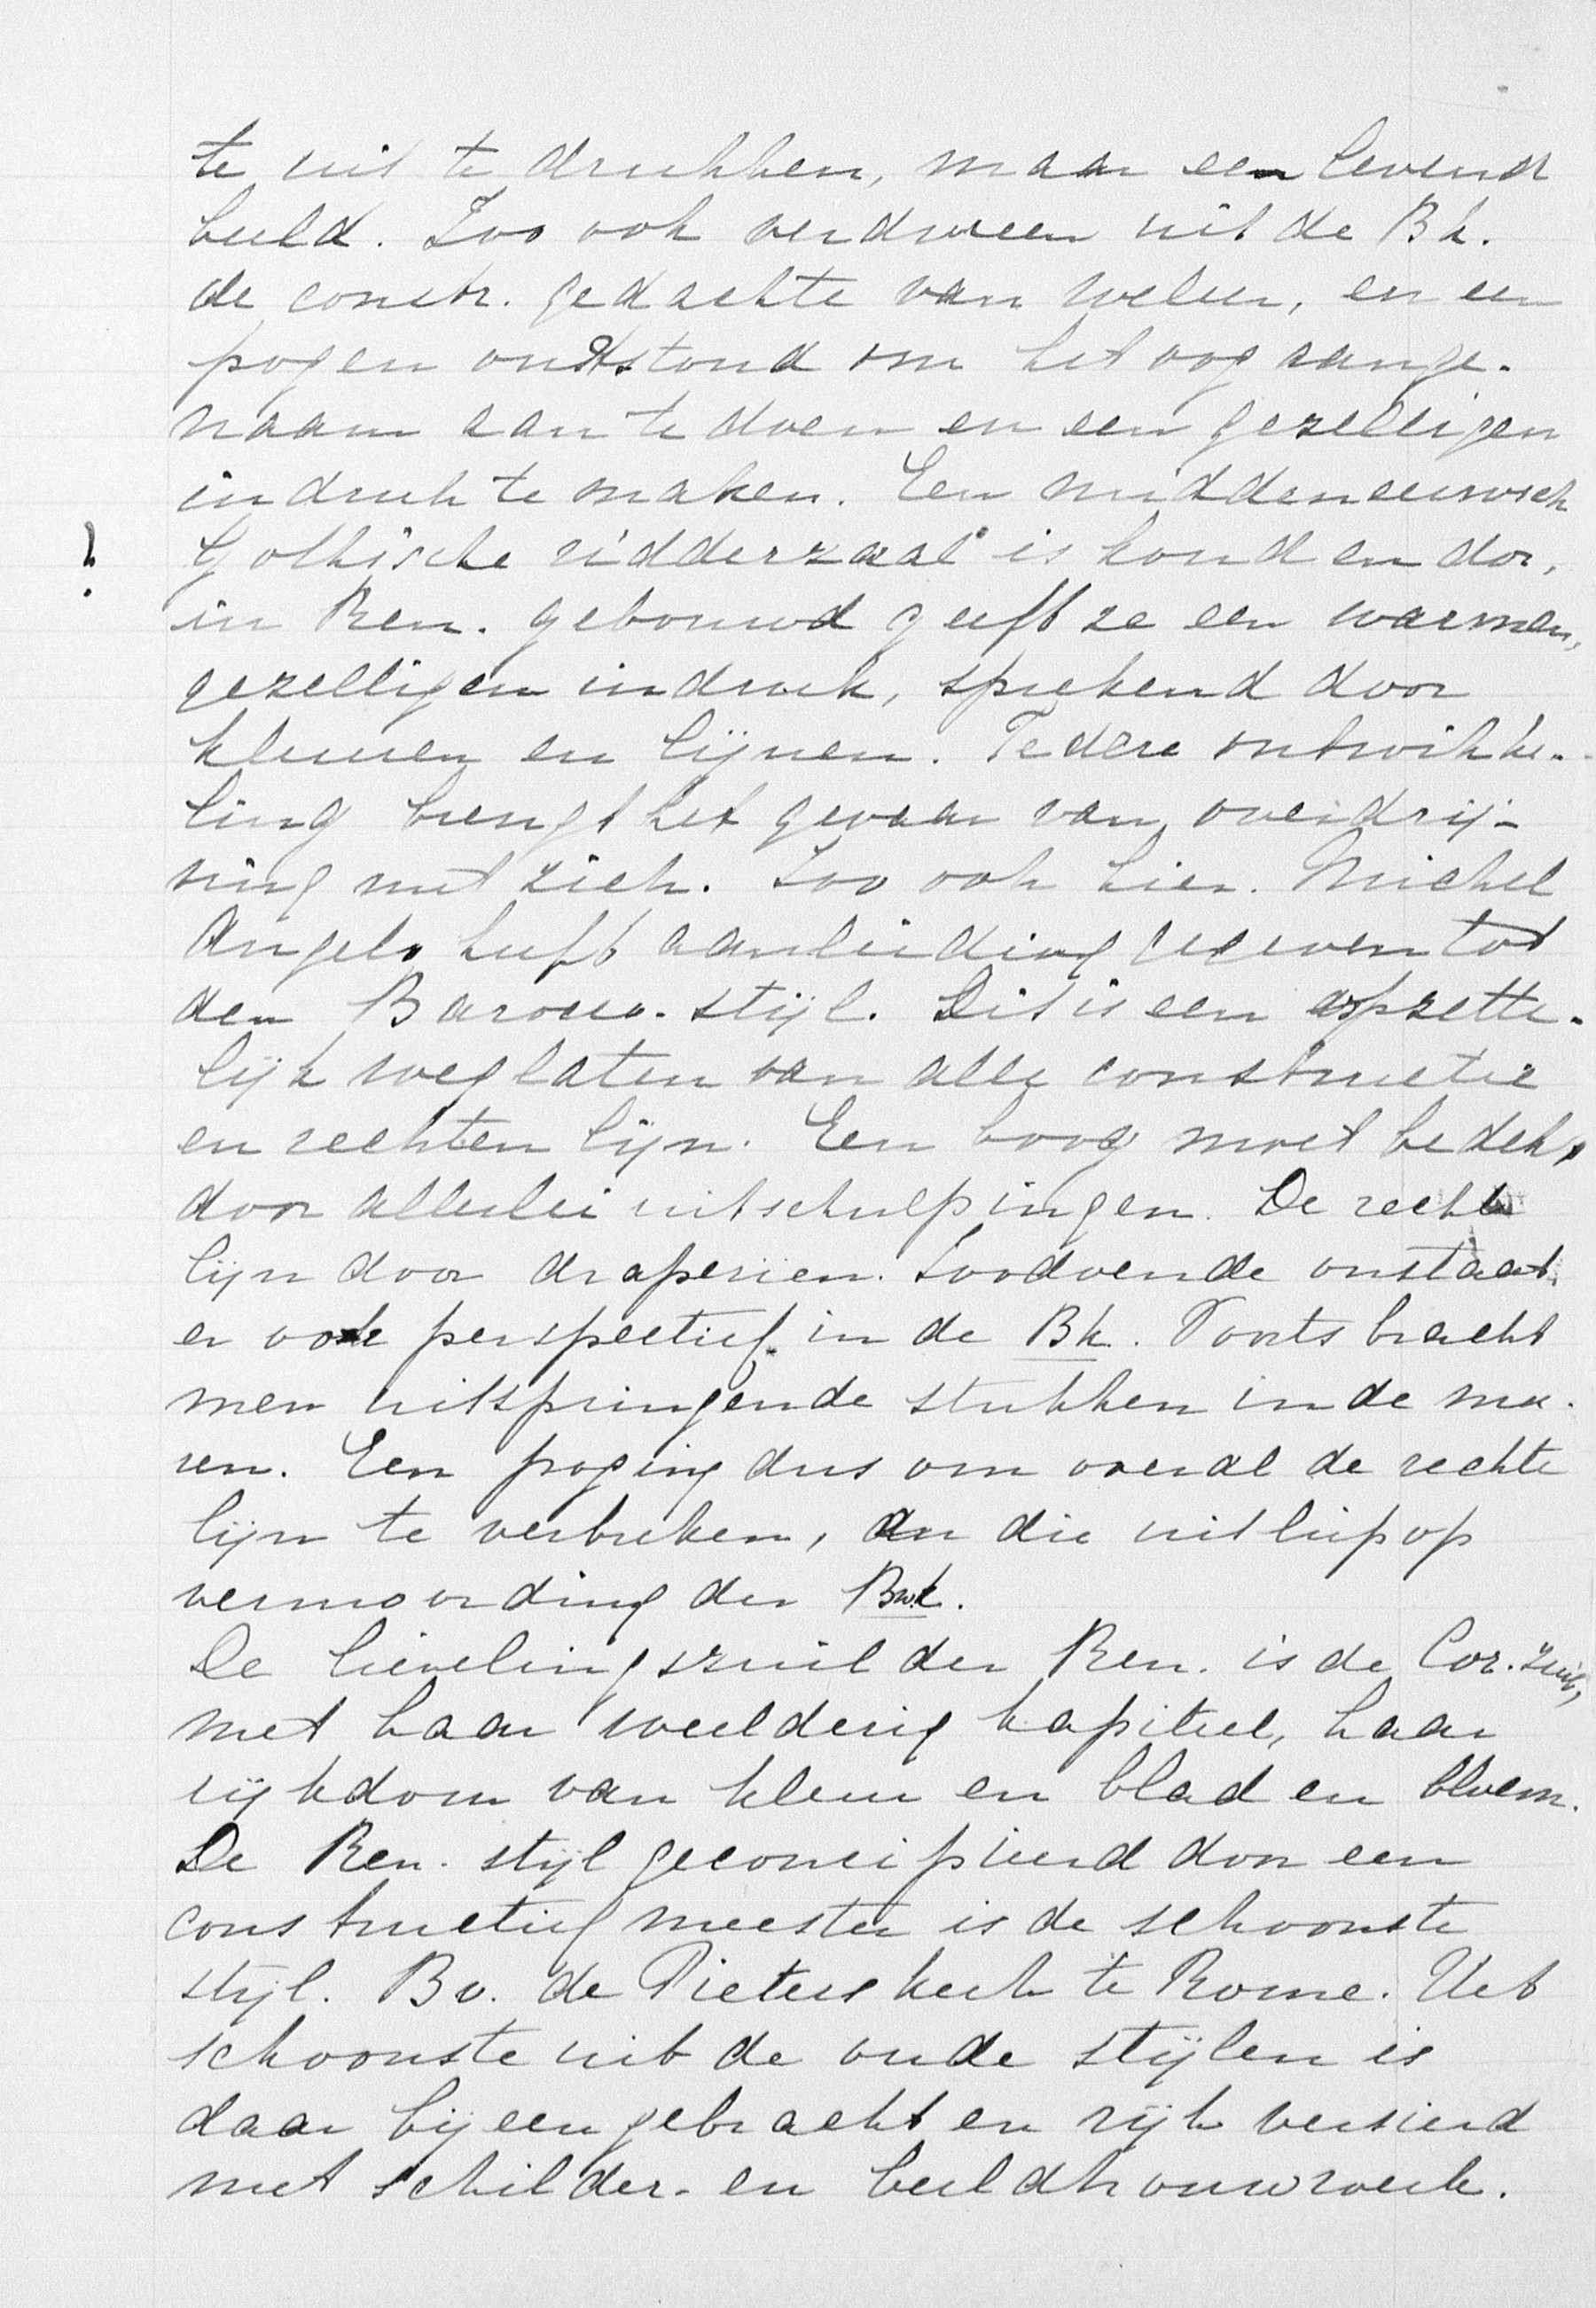 te uit te drukken, maar een levend
beeld. Zoo ook verdween uit de Bk.
de constr. gedachte van weleer, en een
pogen ontstond om het oog aange-
naam aan te doen en een gezelligen
indruk te maken. Een middeneeuwsch
! Gothische ridderzaal is koud en dor,
in Ren. gebouwd geeft ze een warmen,
gezelligen indruk, sprekend door
kleuren en lijnen. Iedere ontwikke-
ling brengt het gevaar van overdrij-
ving met zich. Zoo ook hier. Michel
Angelo heeft aanleiding gegeven tot
den Barocco-stijl. Dit is een opzette-
lijk weglaten van alle constructie
en rechten lijn. Een boog moet bedekt
door allerlei uitschulpingen. De rechte
lijn door draperieen. Zoodoende onstaat
er ook perspectief in de Bk. Voorts bracht
men uitspringende stukken in de mu-
ren. Een poging dus om overal de rechte
lijn te verbreken, en die uitliep op
vermoording der Bwk.
De lievelingszuil der Ren. is de Cor. zuil,
met haar weelderig kapiteel, haar
rijkdom van kleur en blad en bloem.
De Ren. stijl geconcipieerd door een
constructief meester is de schoonste
stijl. Bv. de Pieterskerk te Rome. Het
schoonste uit de oude stijlen is
daar bijeengebracht en rijk versierd
met schilder- en beeldhouwwerk.